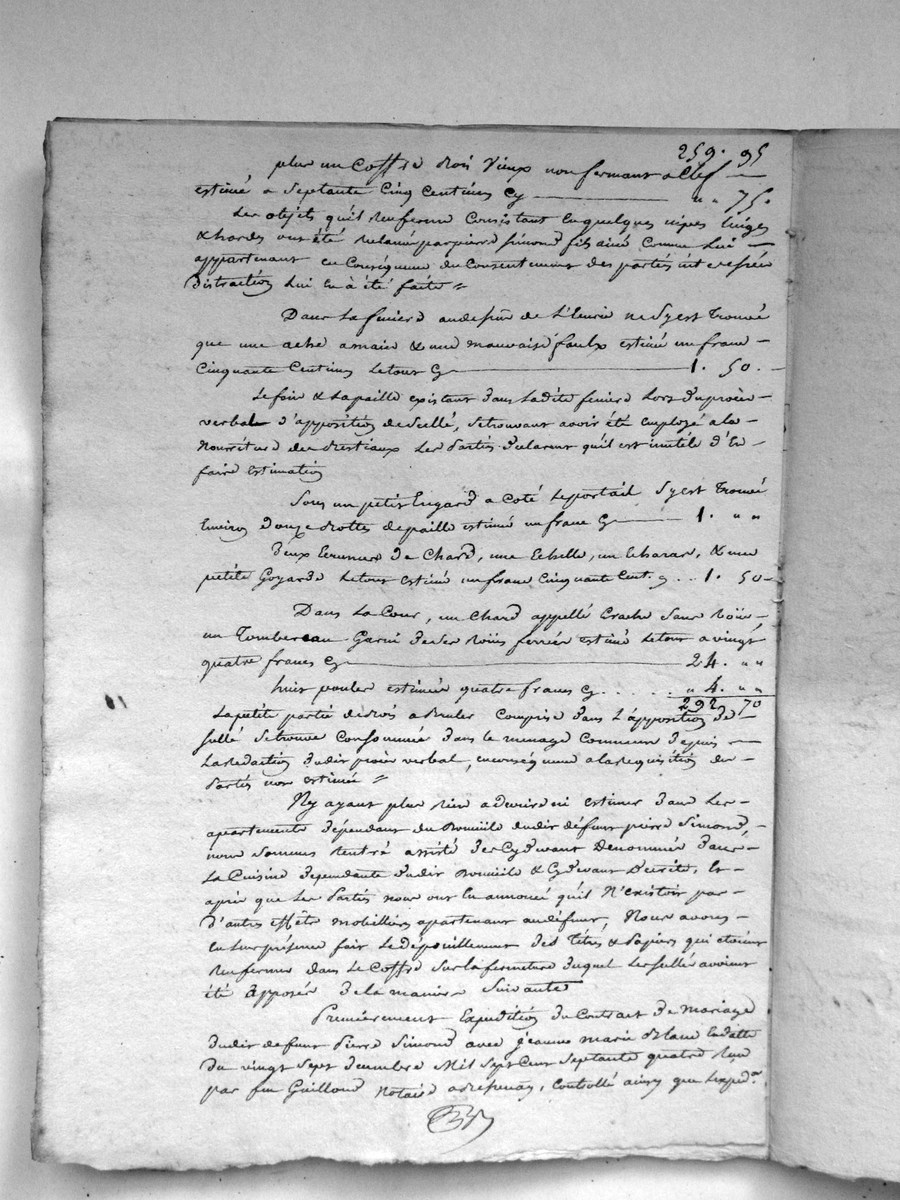 259. 95
plus un Coffre Bois vieux non fermant a Clef
estimé a Septante Cinq Centimes Cy " " 75.
Les objets qu'il renferme Consistant en quelques nipes linges
& hardes ont été reclamé par pierre Simond fils ainé Comme Lui
appartenant en Conséquence du Consentement des partés interessées
Distraction lui en à été faite =
Dans La feniere audessus de L'Ecurie ne Syest Trouvé
que une ache a main & une mauvaise faulx estimé un franc
Cinquante Centimes Letout Cy 1. 50.
Le foin & Lapaille existant dans Ladite feniere Lors du procès
verbal d'apposition de Sellé, Setrouvant avoir été Employé a la
Nourriture des Bestiaux Les Partis declarent quil est inutile d'En
faire estimation
Sous un petit hngard a Coté Leportail Syest Trouvé
Environ douze Bottes depaille estimé un franc Cy 1. " "
deux de Chard, une Echelle, un & une
petite Goyarde Letout estimé un franc Cinquante Cent. Cy .. 1. 50
Dans La Cour, un Chard appellé Sans
un Tombereau Garni de Ses ferrées estimé Letout a vingt
quatre francs Cy 24. " "
huit poules estimée quatre francs Cy . . . . . " 4. " "
292 70
Lapetite partie de Bois a Bruler Comprise dans L'apposition de
Sellé Setrouve Consommée dans le menage Commun depuis
Laredaction dudit procès verbal, enconséquence alarequisition des
Partés non estimée =
Ny ayant plus rien a decrire ni estimer dans Les
apartements dépendant du domicile dudit défunt pierre Simond,
nous Sommes rentré assisté des Cydevant denommés dans
La Cuisine dependante dudit domicile & Cydevant Decrite, Et
après que Les Partés nous ont Eu annoncé quil N'existoit pas
d'autres effets mobilliers apartenant audéfunt, Nous avons
En Leur présence fait Ledépouillement des Titres & Papiers qui étoient
Renfermés dans Le Coffre Sur la fermeture duquel Les Sellé avoient
été apposés de la maniere Suivante
Premièrement Expedition du Contrait de Mariage
dudit defunt Pierre Simond avec jeanne marie En datte
du vingt Sept decembre Mil Sept Cent Septante quatre
par feu Guilloud Notaire a , Controllé ainsy que Lexpedon